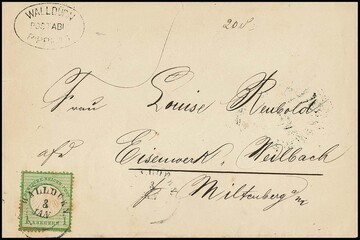 WALLDÜRN
POSTABL.
20 N
Frau Louise Reubold
afd
Eisenwerk, Weilbach
p Miltenberg a/m
WALLDUERN
3
JAN
1 KREUZER